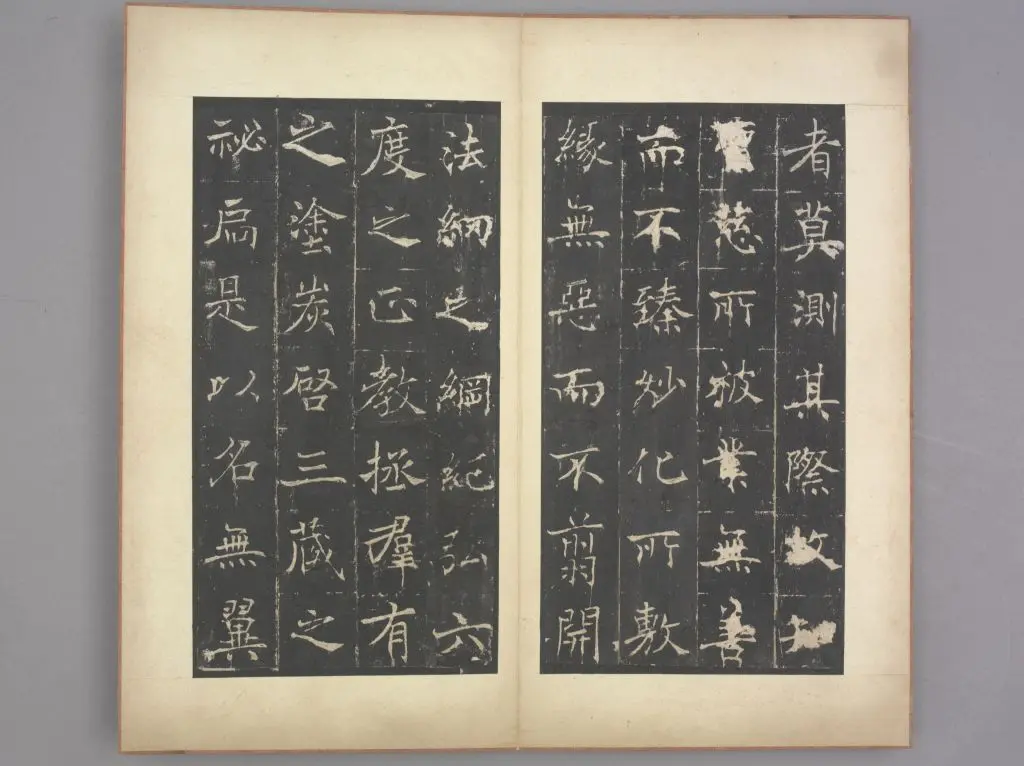 者莫測其際故知
慈所被業無善
而不臻妙化所敷
緣無惡而不翦開
法網之綱紀弘六
度之正教拯羣有
之塗炭啓三藏之
祕扃是以名無翼